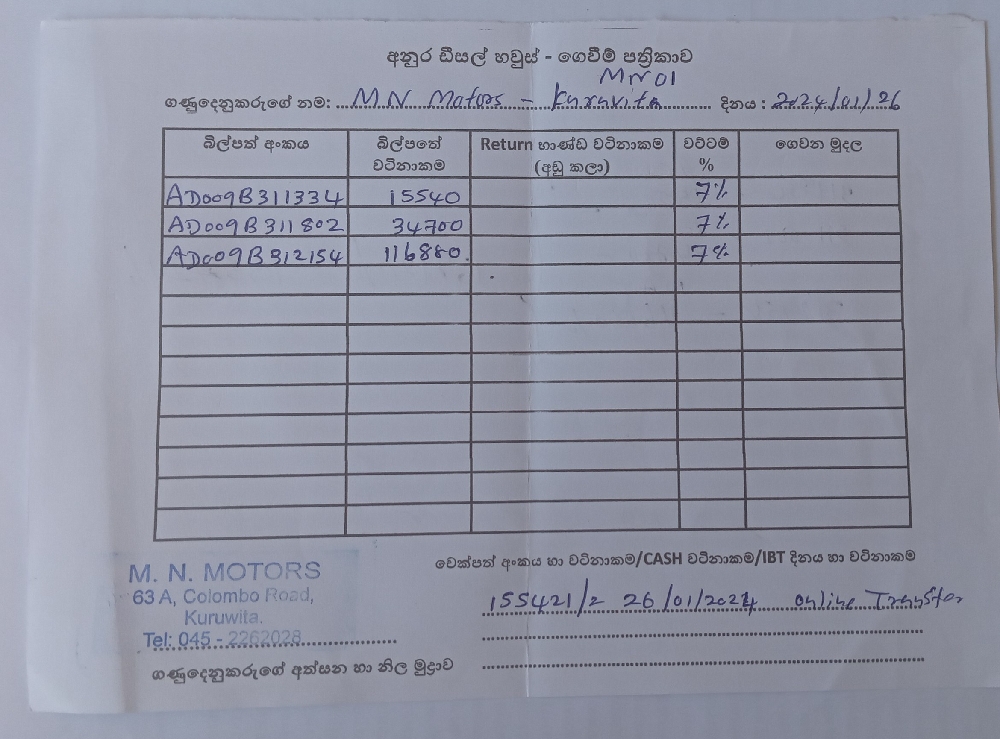 අනුර ඩීසල් හවුස් - ගෙවීම් පත්‍රිකාව
MN01
ගණුදෙනුකරුගේ නම: M N Motors - Kuruvita දිනය : 2024/01/26
බිල්පත් අංකය බිල්පතේ වටිනාකම Return භාණ්ඩ වටිනාකම (අඩු කලා) වට්ටම් % ගෙවන මුදල
AD009B311334 15540 7%
AD009B311802 34700 7%
AD009B312154 116880 7%
චෙක්පත් අංකය හා වටිනාකම/CASH වටිනාකම/IBT දිනය හා වටිනාකම
155421/2 26/01/2024 Online Transfer
M. N. MOTORS
63 A, Colombo Road,
Kuruwita.
Tel: 045 - 2262028
ගණුදෙනුකරුගේ අත්සන හා නිල මුද්‍රාව